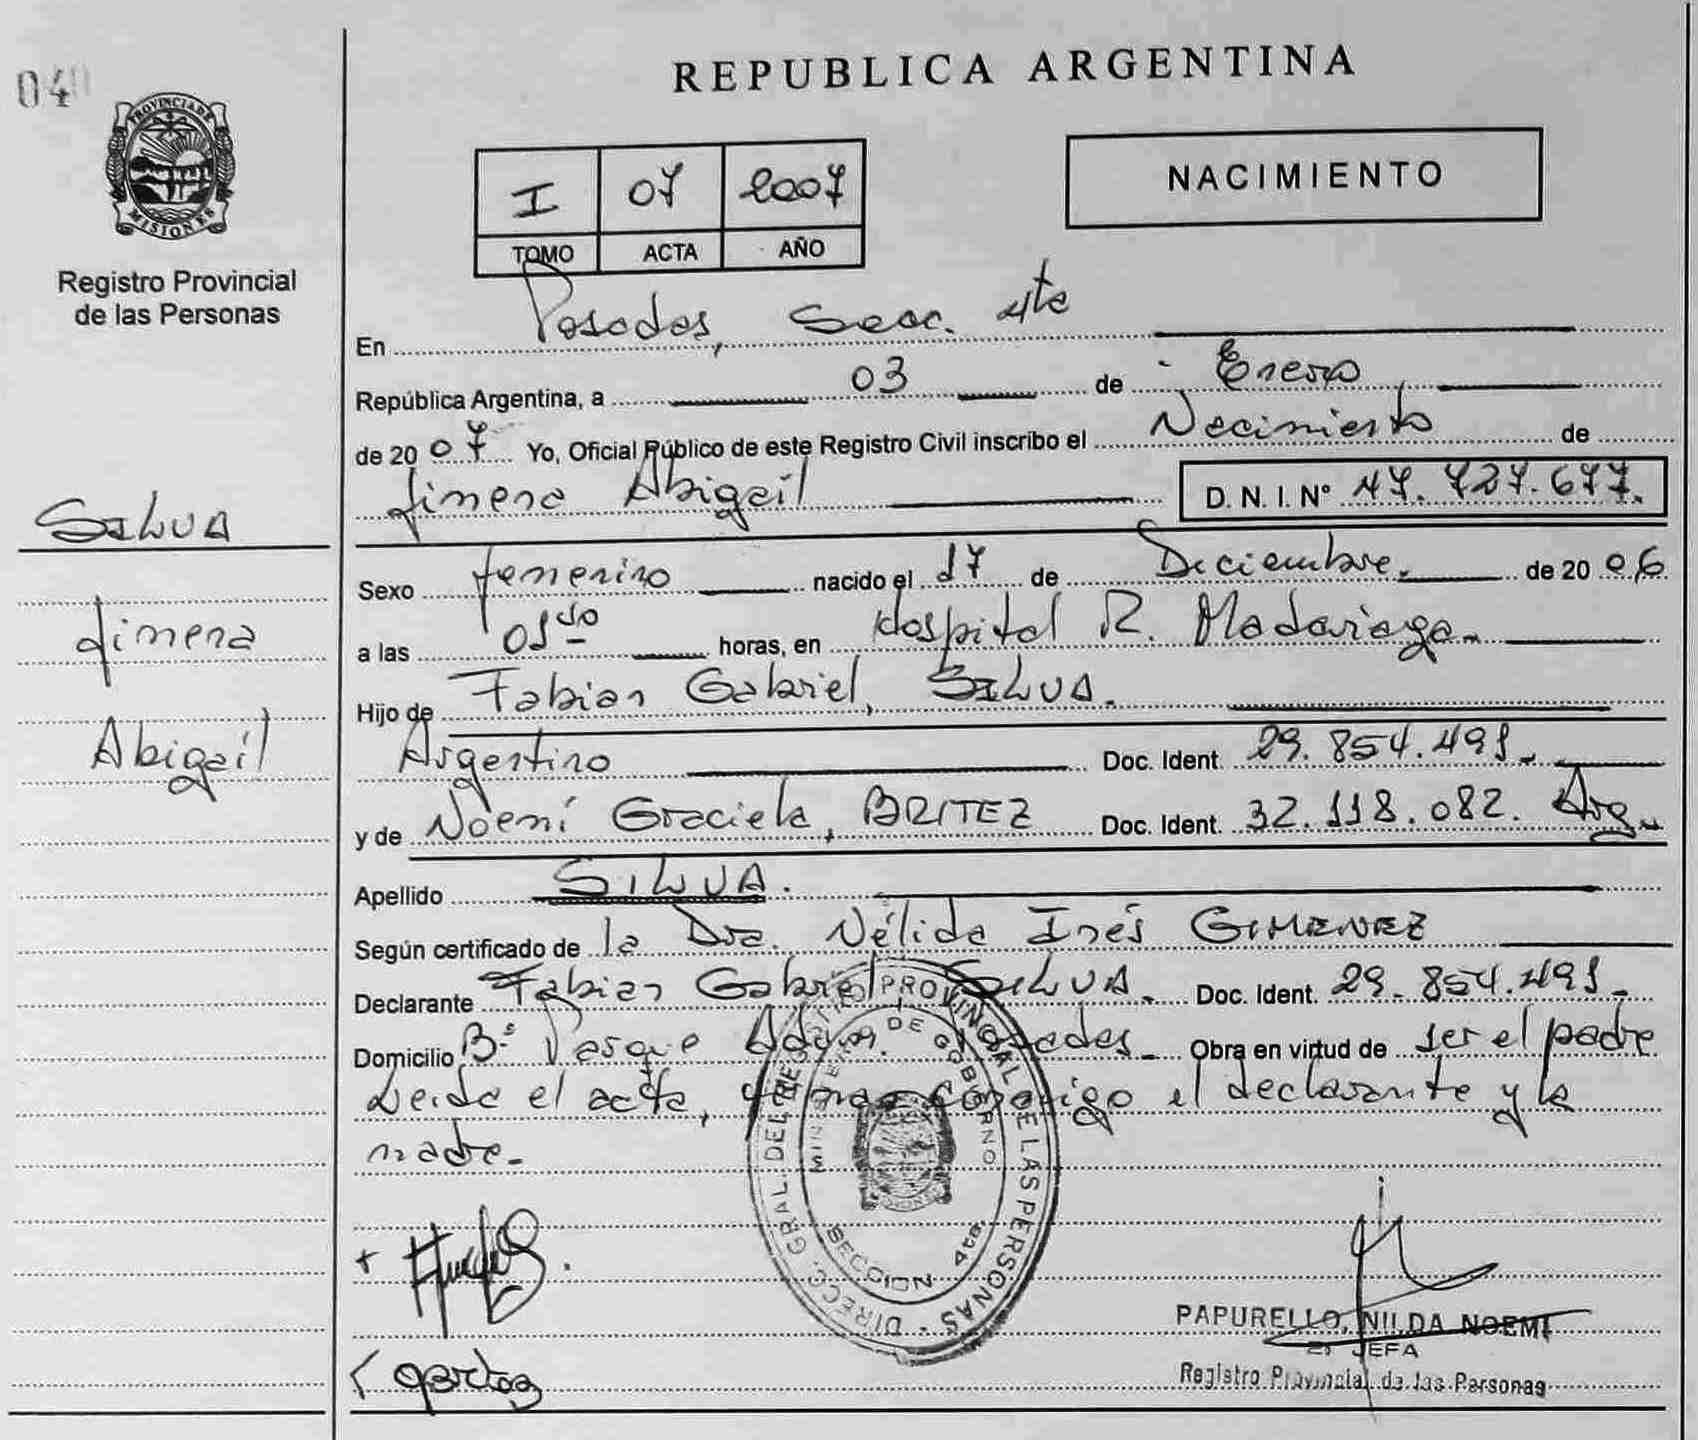 04
PROVINCIA DE
MISIONES
Registro Provincial
de las Personas
SILVA
Jimena
Abigail
REPUBLICA ARGENTINA
I 07 2007
TOMO ACTA AÑO
NACIMIENTO
En Posadas, Secc. 4ta
República Argentina, a 03 de Enero
de 2007 Yo, Oficial Público de este Registro Civil inscribo el Nacimiento de
Jimena Abigail D. N. I. N° 47.727.677.
Sexo femenino nacido el 17 de Diciembre. de 2006
a las horas, en Hospital R. Madariaga.
Hijo de Fabian Gabriel, SILVA.
Argentino Doc. Ident. 29.854.491.
y de Noemí Graciela, BRITEZ Doc. Ident. 32.118.082. Arg.
Apellido SILVA.
Según certificado de la Dra. Nélida Inés GIMENEZ
Declarante Fabian Gabriel SILVA. Doc. Ident. 29.854.491.
Domicilio B° Posadas. Obra en virtud de ser el padre
Leida el acta, firman conmigo el declarante y la
madre.
DIRECC. GRAL. DEL REG. PROVINCIAL DE LAS PERSONAS
MINISTERIO DE GOBIERNO
SECCION 4ta.
PAPURELLO, NILDA NOEMI
JEFA
Registro Provincial de las Personas